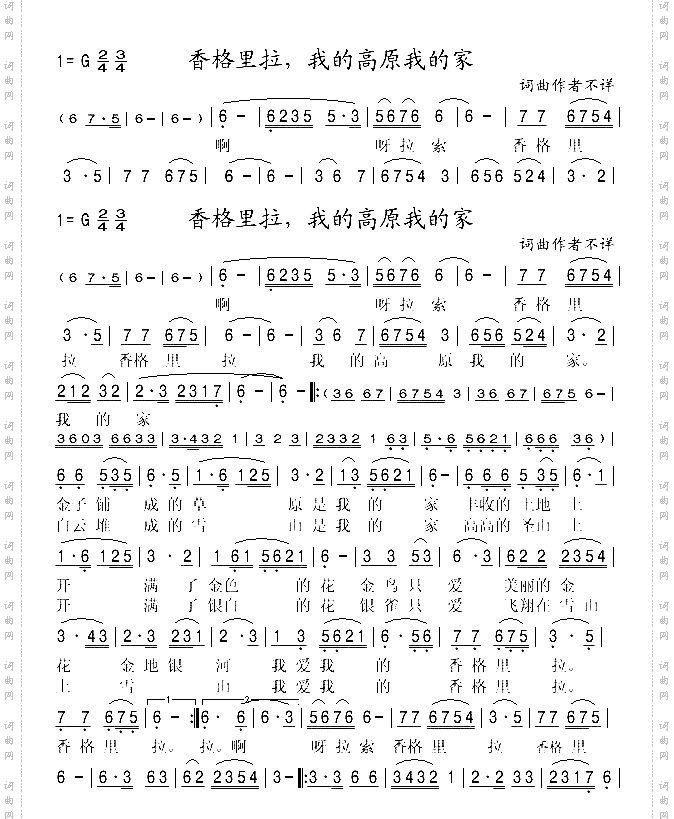 1=G 2/4 3/4 香格里拉，我的高原我的家
词曲作者不详
(6 7·5 | 6- | 6- ) | 6 - | 6235 5·3 | 5676 6 | 6 - | 7 7 6754 |
啊 呀拉索 香格里
3 · 5 | 7 7 675 | 6 - | 6 - | 3 6 7 | 6754 3 | 656 524 | 3 · 2 |
1=G 2/4 3/4 香格里拉，我的高原我的家
词曲作者不详
(6 7·5 | 6- | 6- ) | 6 - | 6235 5·3 | 5676 6 | 6 - | 7 7 6754 |
啊 呀拉索 香格里
3 · 5 | 7 7 675 | 6 - | 6 - | 36 7 | 6754 3 | 656 524 | 3 · 2 |
拉 香格里拉 我的高原我的家。
212 32 | 2·3 2317 | 6 - | 6 - ‖: (36 67 | 6754 3 | 36 67 | 675 6- |
我的家
3603 6633 | 3·432 1 | 3 2 3 | 2332 1 63 | 5·6 5621 | 666 36 )|
6 6 535 | 6·5 | 1·6 125 | 3·2 | 13 5621 | 6 - | 6 6 6 5 35 | 6·1 |
金子铺成的草原是我的家 丰收的土地上
白云堆成的雪山是我的家 高高的圣山上
1·6 125 | 3 · 2 | 1 61 5621 | 6 - | 3 3 53 | 6 ·3 | 62 2 2354 |
开满了金色的花 金鸟只爱美丽的金
开满了银白的花 银雀只爱飞翔在雪山
3· 43 | 2·3 231 | 2·3 | 1 3 5621 | 6 · 56 | 7 7 675 | 3 · 5 |
花 金地银河我爱我的香格里拉。
上 雪山我爱我的香格里拉。
7 7 675 | 6 - :‖ 6· 6 | 6·3 | 5676 6 | 6 - | 77 6754 | 3·5 | 77 675 |
香格里拉。拉。啊 呀拉索香格里拉 香格里
6 - | 6·3 63 | 62 2354 | 3- ‖: 3·3 6 6 | 3432 1 | 2·2 33 | 2317 6 |
词曲网